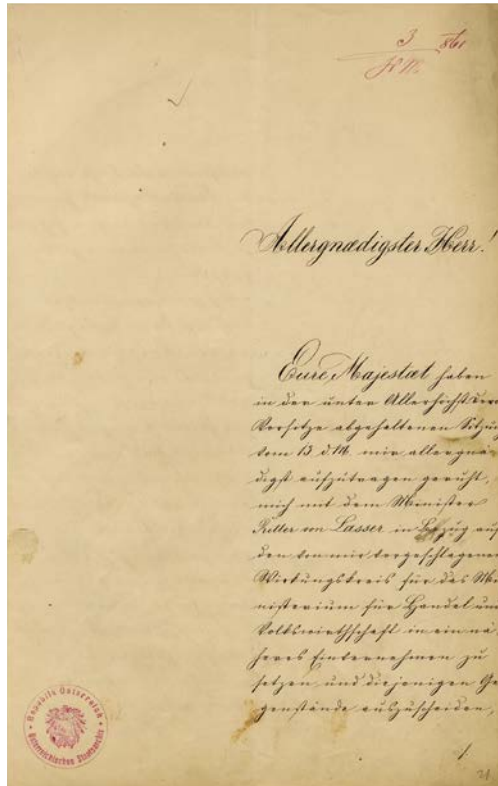 3 861
Allergnædigster Herr!
Eure Majestæt haben
in der unter Allerhöchst Dero
Vorsitze abgehaltenen Sitzug
vom 13 d M. mir allergnä
digst aufzutragen geruht,
mich mit dem Minister
Ritter von Lasser in Bezug auf
den von mir vorgeschlagenen
Wirkungskreis für das Mi
nisterium für Handel und
Volkswirthschaft in ein nä
heres Einvernehmen zu
setzen und diejenigen Ge
genstände auszuscheiden,
Republik Österreich
Österreichisches Staatsarchiv
21